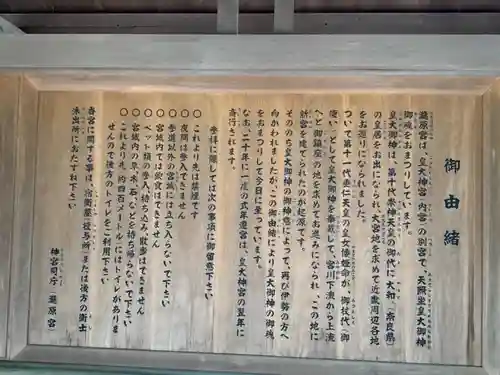 御由緒
瀧原宮は、皇大神宮(内宮)の別宮で、天照坐皇大御神
御魂をおまつりしています。
皇大御神は、第十代崇神天皇の御代に大和(奈良県)
の皇居をお出になられ、大宮地を求めて近畿周辺各地
をお巡りになられました。
ついで第十一代垂仁天皇の皇女倭姫命が、御杖代(御
使い)として皇大御神を奉戴して、宮川下流から上流
へと御鎮座の地を求めてお進みになられ、この地に
新宮を建てられたのが起源です。
そののち皇大御神の御神意によって、再び伊勢の方へ
向かわれましたが、この御由緒により皇大御神の御魂
をおまつりして今日に至っています。
なお、二十年に一度の式年遷宮は、皇大神宮の翌年に
斎行されます。
参拝に際しては次の事項に御留意下さい
○これより先は禁煙です
○夜間は参入できません
○参道以外の宮域には立ち入らないで下さい
○宮域内では飲食はできません
○ペット類の参入、持ち込み、散歩はできません
○宮域内の草、木、石、などを持ち帰らないで下さい
○これより先、約四百メートルにはトイレがありま
せんので後方のトイレをご利用下さい
当宮に関する事は、宿衛屋(授与所)または後方の衛士
派出所におたずね下さい
神宮司庁(瀧原宮)